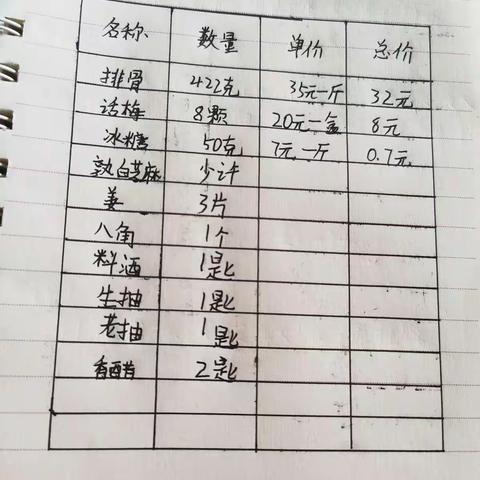 名称 数量 单价 总价
排骨 422克 35元一斤 32元
话梅 8颗 20元一盒 8元
冰糖 50克 7元一斤 0.7元
熟白芝麻 少许
姜 3片
八角 1个
料酒 1匙
生抽 1匙
老抽 1匙
香醋 2匙